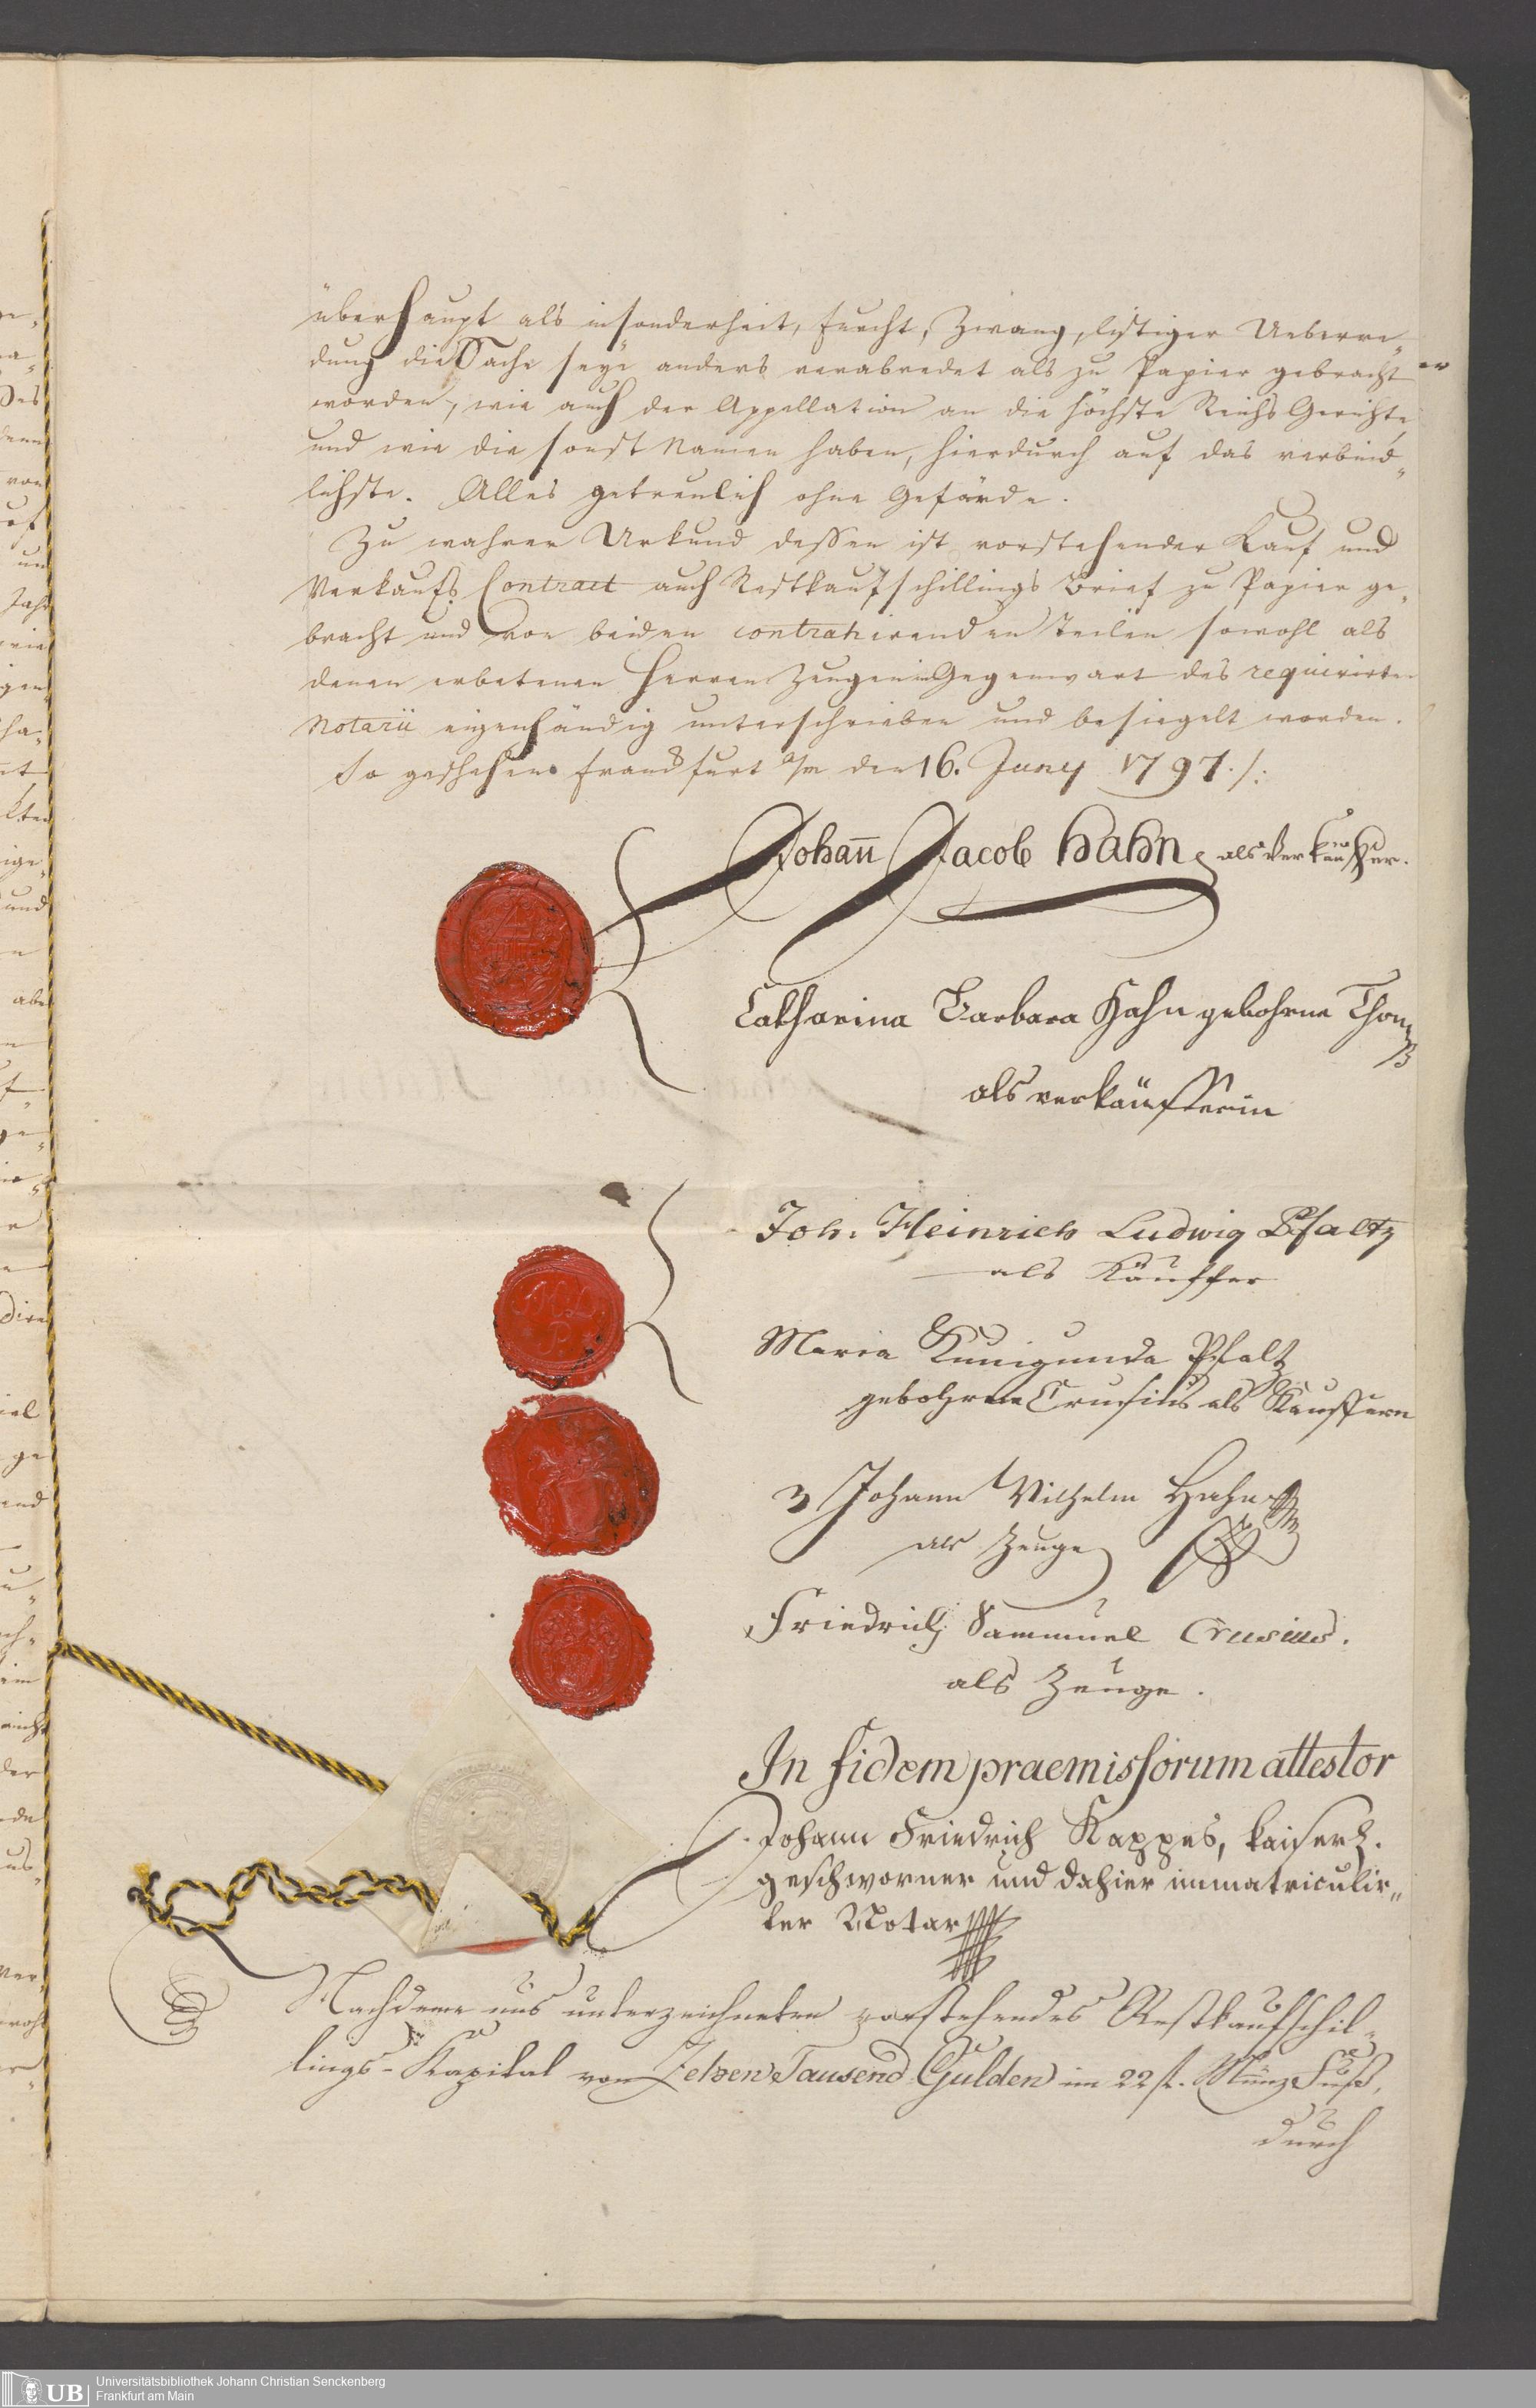 überhaupt als insonderheit, Furcht, Zwang, listiger Ueberre„
dung die Sache seye anders verabredet als zu Papier gebracht
worden, wie auch der Appellation an die höchste Reichs Gerichte
und wie die sonst Namen haben, hierdurch auf das verbind„
lichste. Alles getreulich ohne Gefärde.
Zu wahrer Urkund dessen ist vorstehender Kauf und
Verkaufs Contract auch Restkaufschillings Brief zu Papier ge„
bracht und von beiden contrahirenden Teilen sowohl als
denen erbetenen Herren Zeugen in Gegenwart des requirirten
Notarii eigenhändig unterschrieben und besiegelt worden.
So geschehen Frankfurt a/m den 16. Juny 1797./:
Johañ Jacob Hahn, als Verkäuffer.
Catharina Barbara Hahn gebohrne Thomß
als verkäufferin
Joh. Heinrich Ludwig Pfaltz
als Käuffer
Maria Kunigunda Pfaltz
gebohrne Crusius als Käuffern
Johann Wilhelm Hahn
als Zeuge
Friedrich Sammuel Crusius.
als Zeuge.
In fidem praemissorum attestor
Johann Friedrich Kappes, kaiserl.
geschworner und dahier immatriculir„
ter Notar
Nachdeme uns unterzeichneten vorstehendes Restkaufschil„
lings-Kapital von Zehen Tausend Gulden im 22 fl. Münz Fuß,
durch
UB
Universitätsbibliothek Johann Christian Senckenberg
Frankfurt am Main